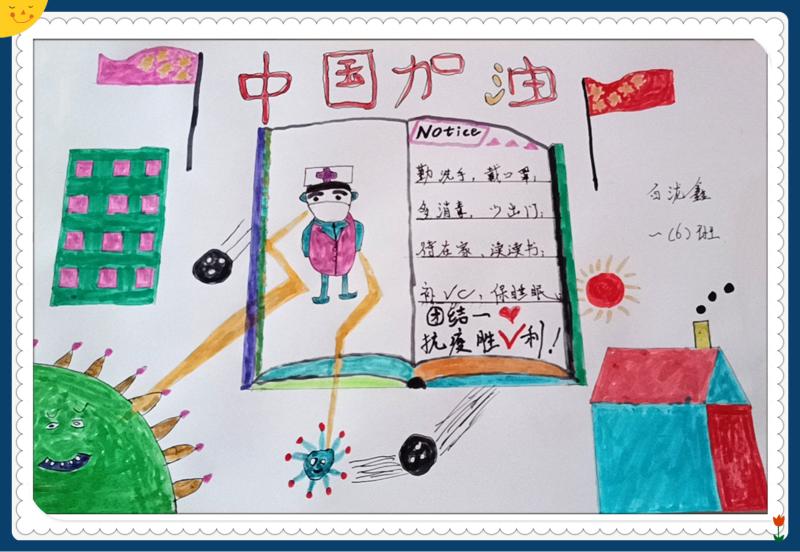 中国加油
Notice
勤洗手,戴口罩;
多消毒,少出门;
待在家,读读书;
补VC,保睡眠。
团结一❤
抗疫胜√利!
白泷鑫
一(6)班